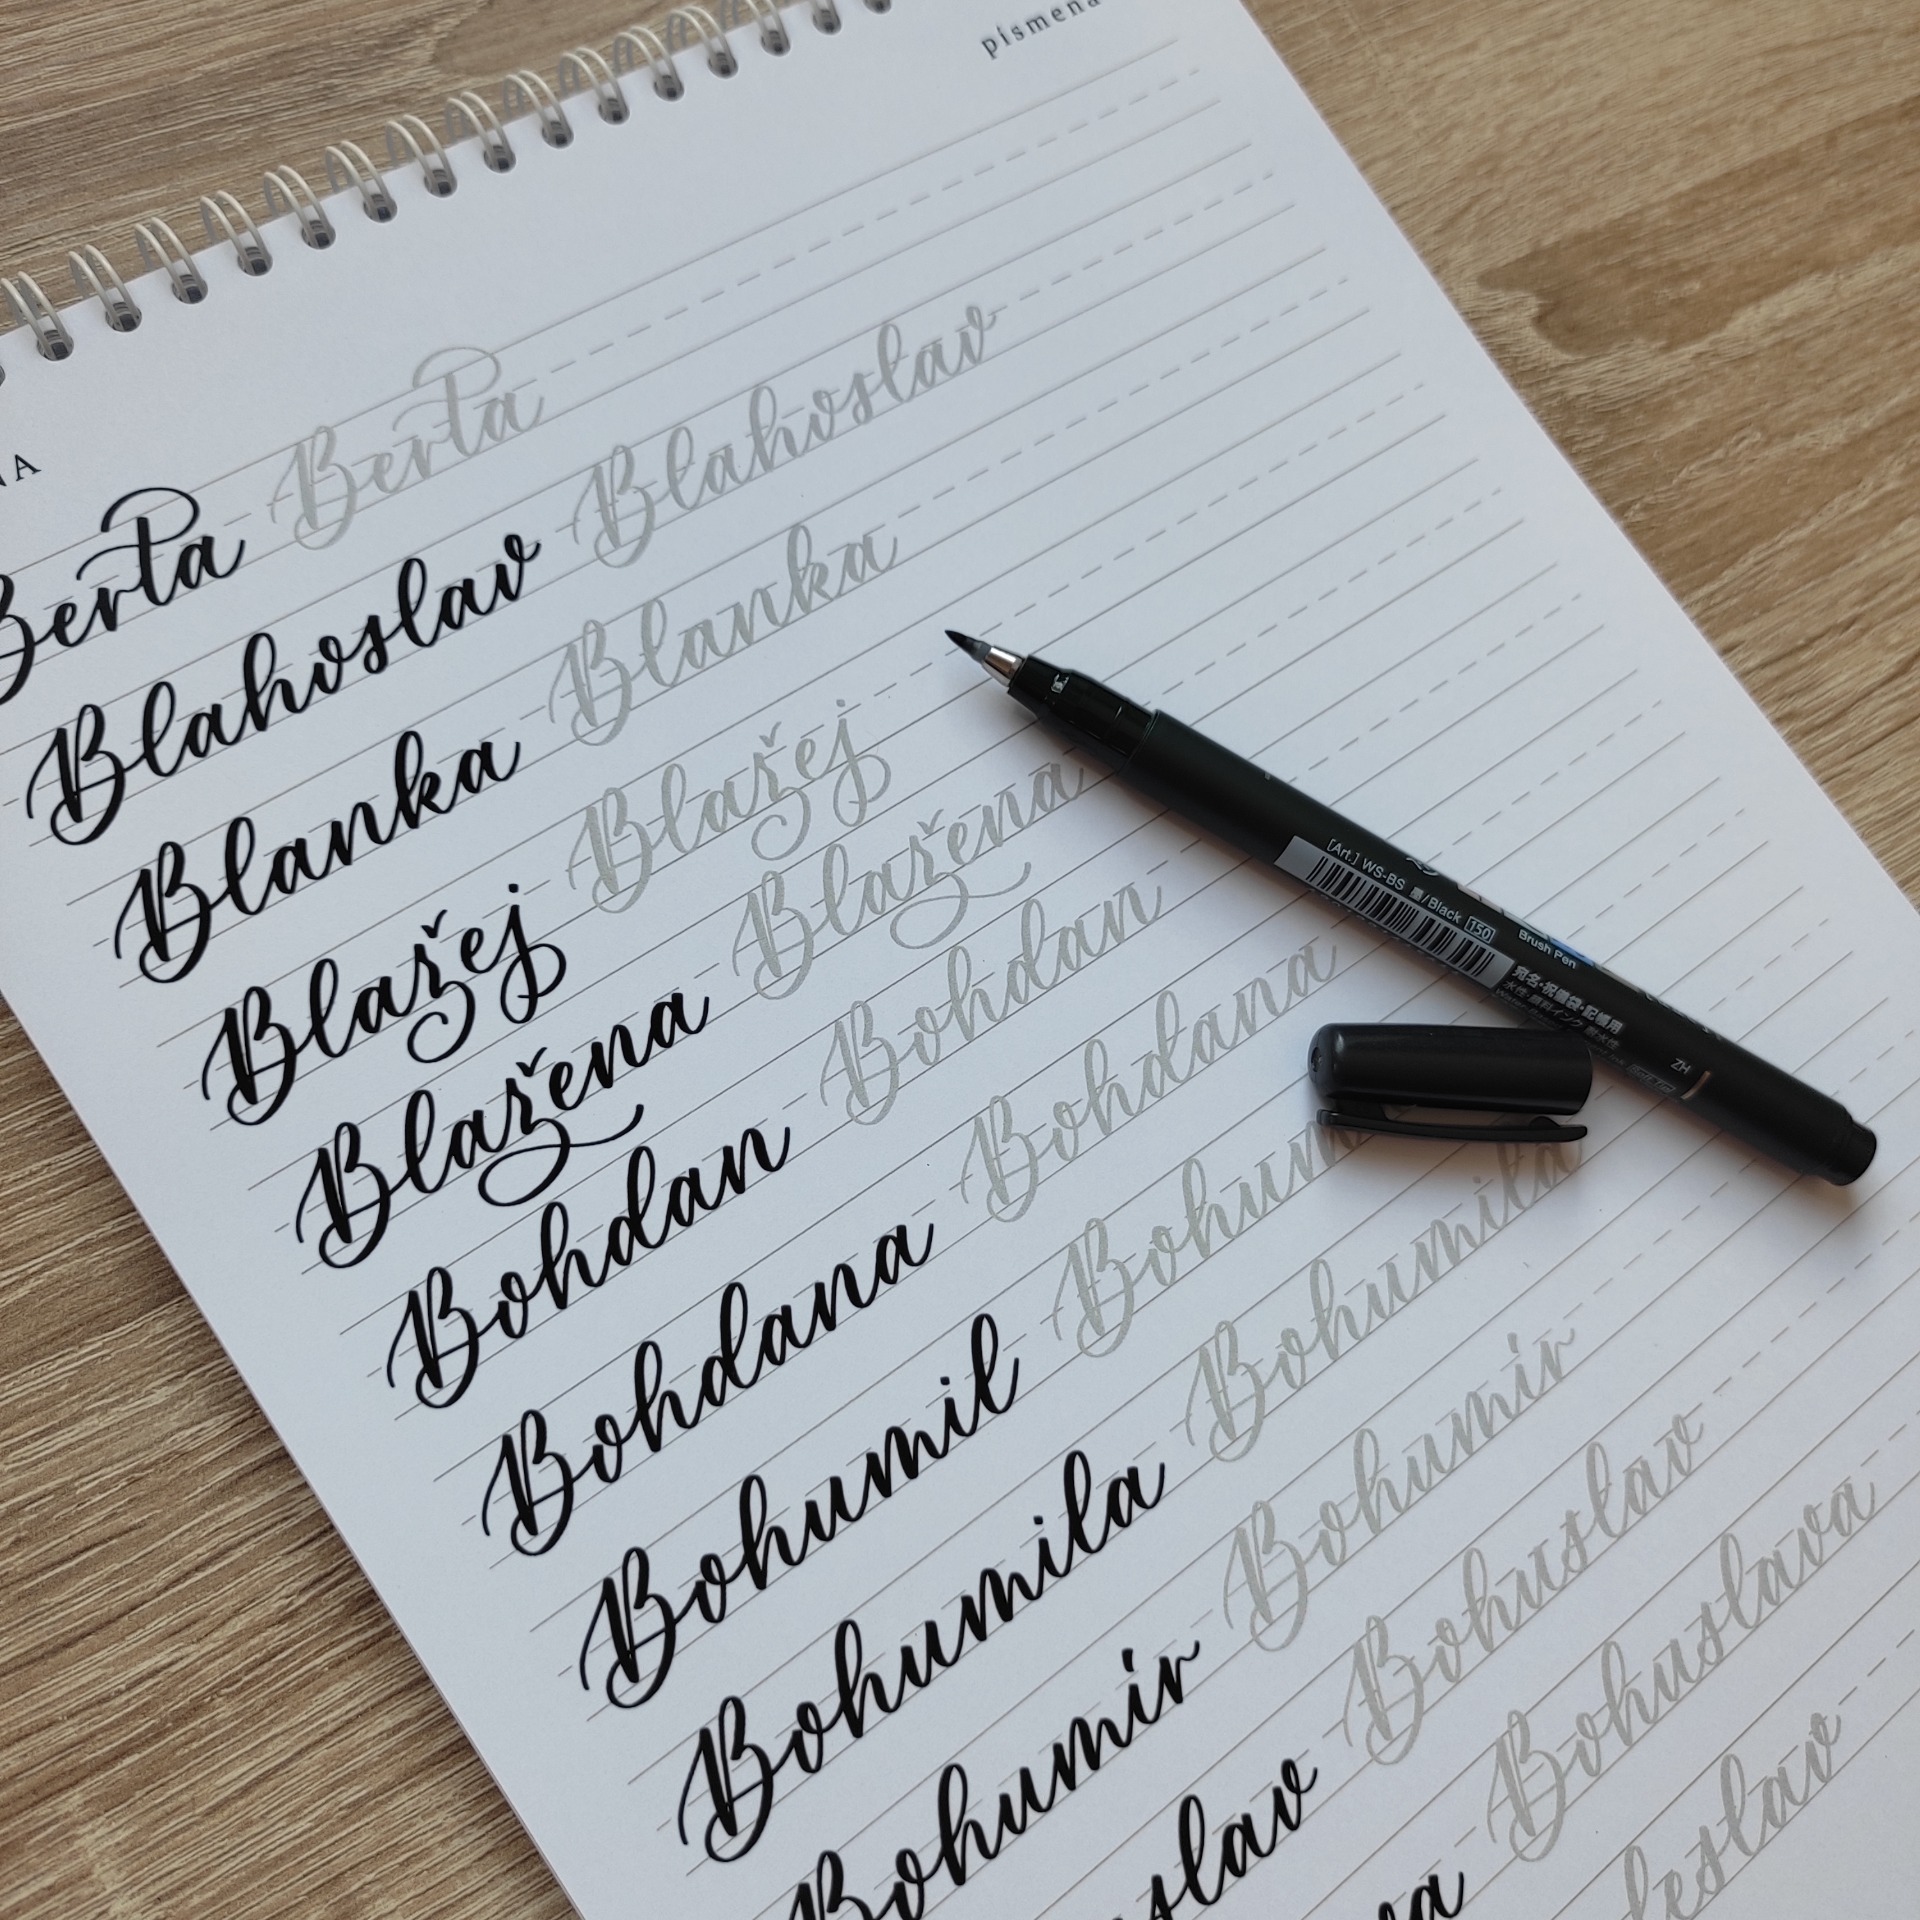 písmena
Berta Berta
Blahoslav Blahoslav
Blanka Blanka
Blažej Blažej
Blažena Blažena
Bohdan Bohdan
Bohdana Bohdana
Bohumil
Bohumila Bohumila
Bohumír Bohumír
Bohuslav
Bohuslava
[Art.] WS-BS 墨/Black 150
Brush Pen
宛名・祝儀袋・記帳用
水性・顔料インク 耐水性
ZH